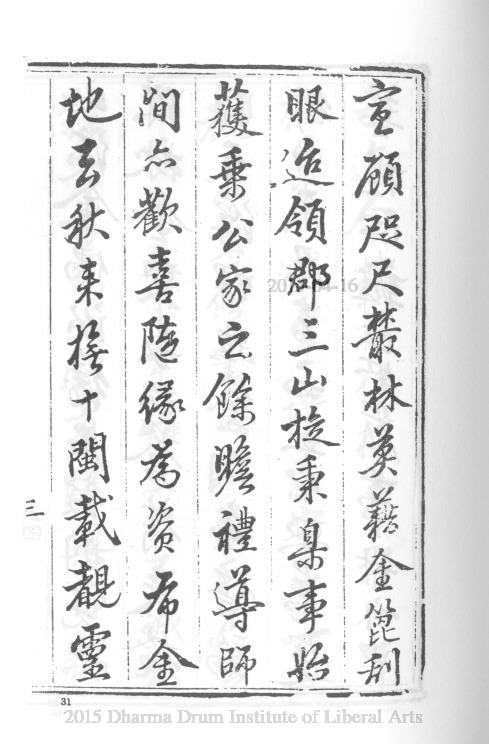 宣顧咫尺叢林莫藉金篦刮
眼迨領郡三山旋秉臬事始
獲乗公家之餘瞻禮導師
間亦歡喜隨緣為資布金
地去秋来撫十閩載覩靈
三
31
2015-04-16
2015 Dharma Drum Institute of Liberal Arts